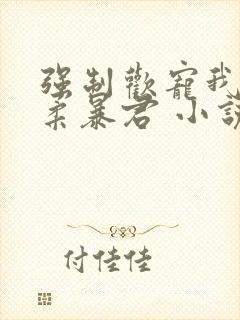 強制歡寵我
柔暴君 小說
付佳佳